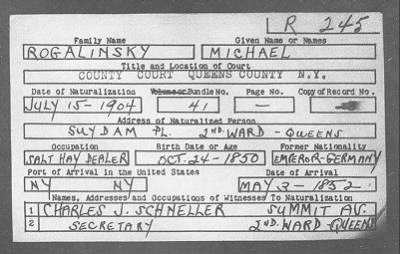 R 245
Family Name Given Name or Names
ROGALINSKY MICHAEL
Title and Location of Court
COUNTY COURT QUEENS COUNTY N.Y.
Date of Naturalization Volume or Bundle No. Page No. Copy of Record No.
JULY 15-1904 41 —
Address of Naturalized Person
SUYDAM PL. 2ND. WARD - QUEENS
Occupation Birth Date or Age Former Nationality
SALT HAY DEALER OCT. 24-1850 EMPEROR-GERMANY
Port of Arrival in the United States Date of Arrival
NY NY MAY 3-1852
Names, Addresses and Occupations of Witnesses To Naturalization
1 CHARLES J. SCHNELLER SUMMIT AV.
2 SECRETARY 2ND. WARD-QUEENS